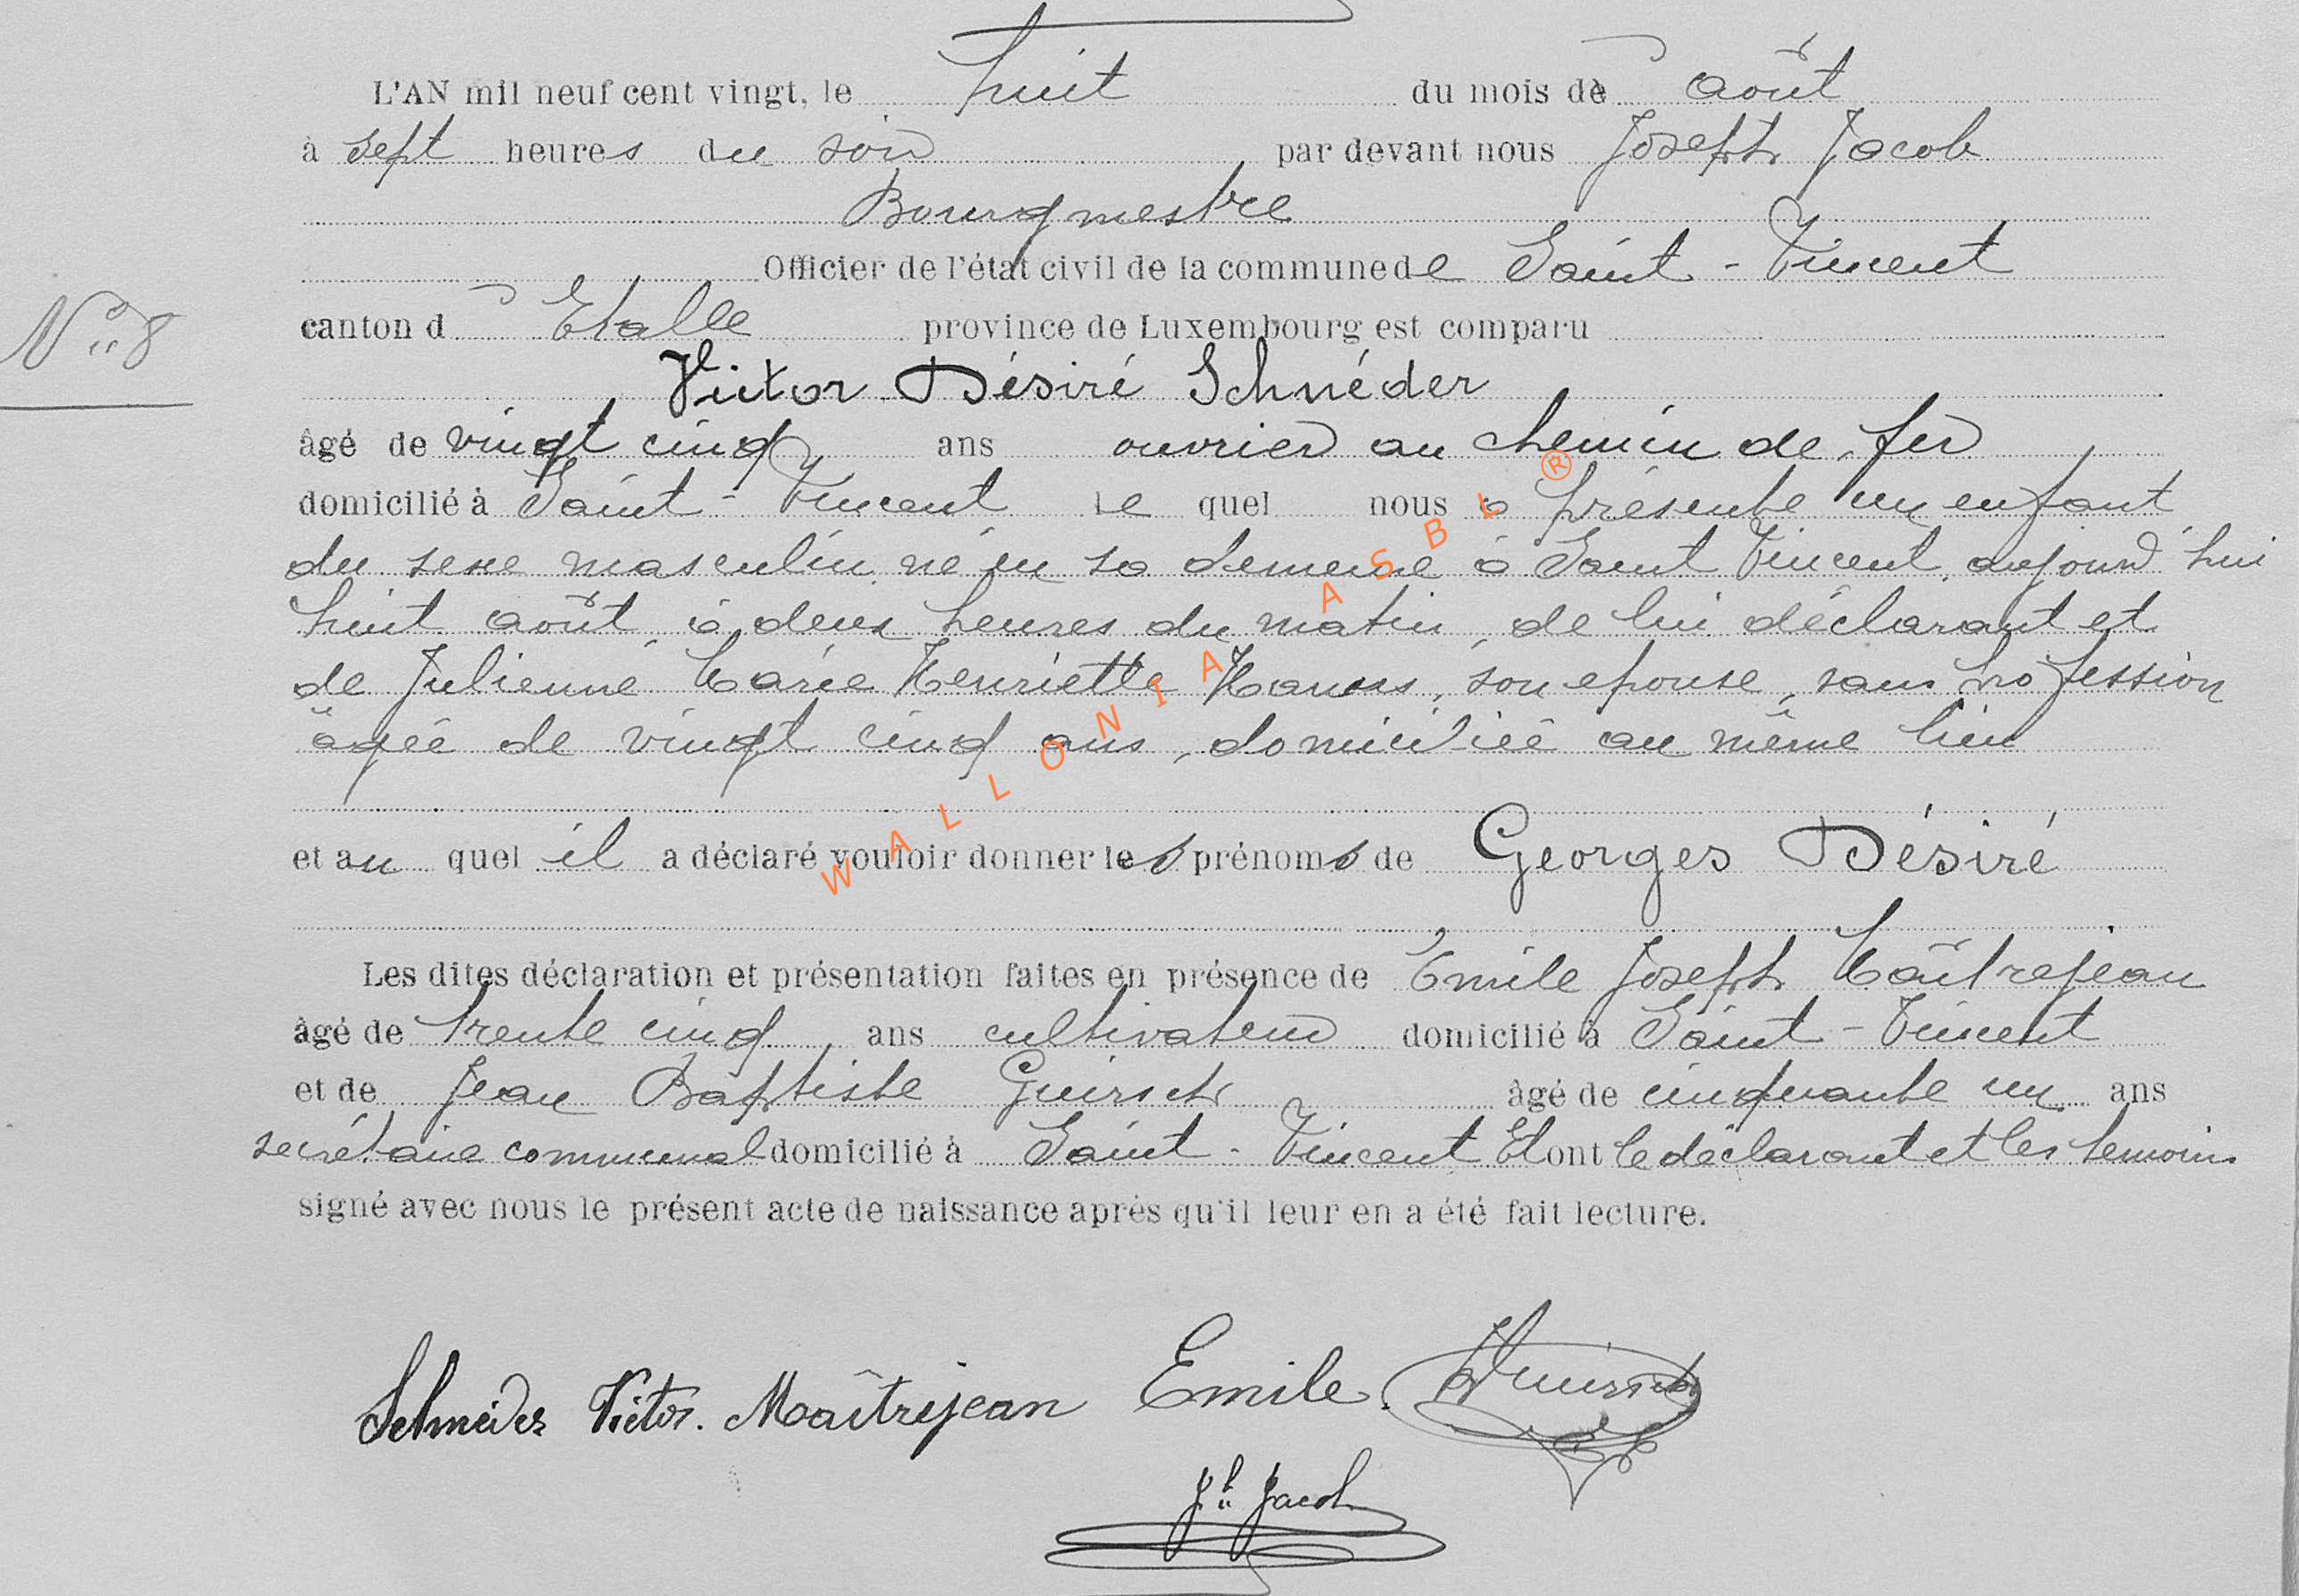 L'AN mil neuf cent vingt, le huit du mois de août
à sept heures du soir par devant nous Joseph Jacob
Bourgmestre
Officier de l'état civil de la commune de Saint-Vincent
N° 8
canton d Etalle province de Luxembourg est comparu
Victor Désiré Schnéder
âgé de vingt cinq ans ouvrier au chemin de fer
domicilié à Saint-Vincent le quel nous a présenté un enfant
du sexe masculin, né en sa demeure à Saint Vincent, aujourd'hui
huit août, à deux heures du matin, de lui déclarant et
de Julienne Marie Henriette, son épouse, sans profession
âgée de vingt cinq ans, domiciliée au même lieu
et au quel il a déclaré vouloir donner les prénoms de Georges Désiré
Les dites déclaration et présentation faites en présence de Emile Joseph Maîtrejean
âgé de trente cinq ans cultivateur domicilié à Saint-Vincent
et de Jean Baptiste Guirsch âgé de cinquante un ans
secrétaire communal domicilié à Saint-Vincent Et ont le déclarant et les témoins
signé avec nous le présent acte de naissance après qu'il leur en a été fait lecture.
Schnéder Victor. Maîtrejean Emile. Guirsch
Jh Jacob
WALLONIA ASBL ®